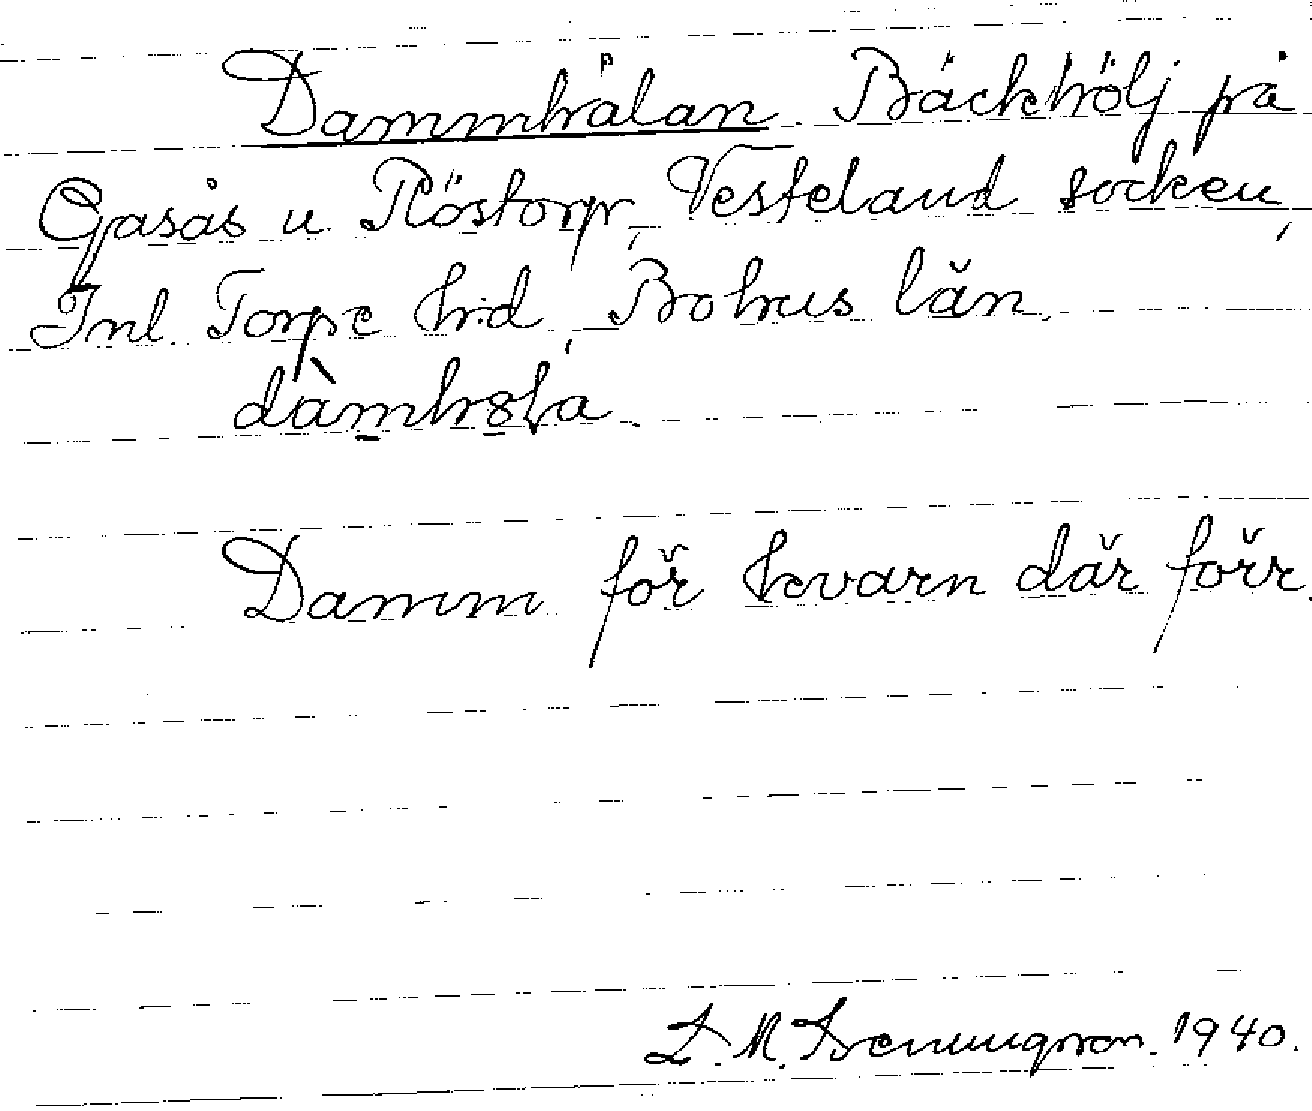 Dammhålan. Bäckhölj på
Gasås u Röstorp, Vesteland socken,
Inl. Torpe hrd, Bohus län.
Damm för kvarn där förr.
1940.